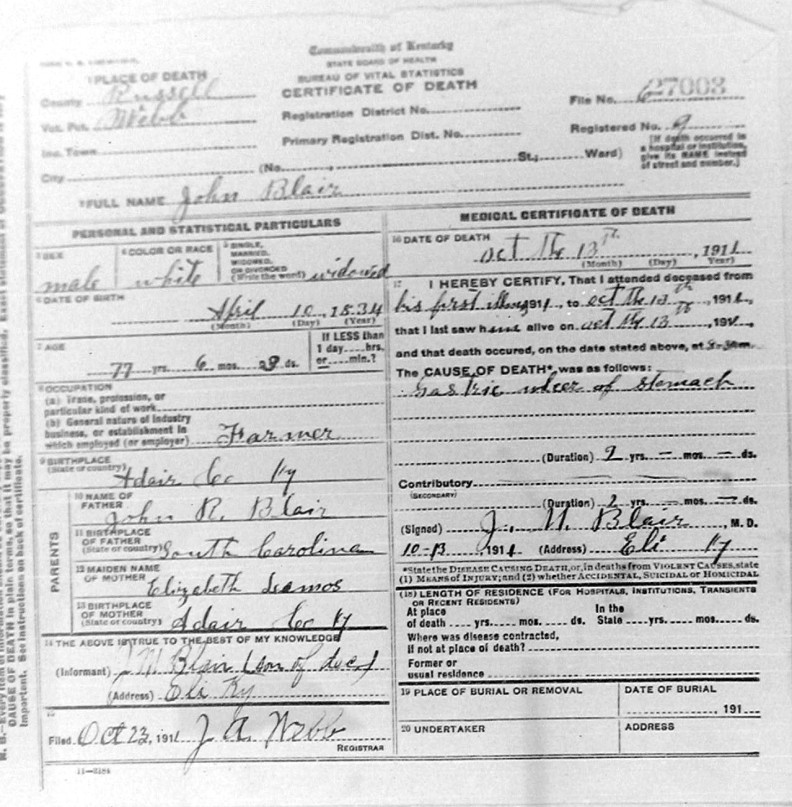 Commonwealth of Kentucky
STATE BOARD OF HEALTH
BUREAU OF VITAL STATISTICS
CERTIFICATE OF DEATH
1 PLACE OF DEATH
County Russell
Vot. Pct. Webb
Inc. Town
City
Registration District No.
Primary Registration Dist. No.
(No. St.; Ward)
File No. 27003
Registered No. 9
[If death occurred in
a hospital or institution,
give its NAME instead
of street and number.]
2 FULL NAME John Blair
PERSONAL AND STATISTICAL PARTICULARS
3 SEX
male
4 COLOR OR RACE
white
5 SINGLE,
MARRIED,
WIDOWED,
OR DIVORCED
(Write the word) widowed
6 DATE OF BIRTH
April 10, 1834
(Month) (Day) (Year)
7 AGE
77 yrs. 6 mos. ds.
If LESS than
1 day....hrs.
or....min.?
8 OCCUPATION
(a) Trade, profession, or
particular kind of work
(b) General nature of industry
business, or establishment in
which employed (or employer) Farmer
9 BIRTHPLACE
(State or country) Adair Co Ky
PARENTS
10 NAME OF
FATHER John R. Blair
11 BIRTHPLACE
OF FATHER
(State or country) South Carolina
12 MAIDEN NAME
OF MOTHER Elizabeth
13 BIRTHPLACE
OF MOTHER
(State or country) Adair Co Ky
14 THE ABOVE IS TRUE TO THE BEST OF MY KNOWLEDGE
(Informant) Blair (son of dec)
(Address) Eli Ky
15
Filed Oct 23, 1911 J A Webb
REGISTRAR
11—2184
MEDICAL CERTIFICATE OF DEATH
16 DATE OF DEATH
Oct the 13th, 1911
(Month) (Day) (Year)
17 I HEREBY CERTIFY, That I attended deceased from
his first 191 , to oct the 13th, 1911,
that I last saw h alive on oct the 13th, 191 ,
and that death occured, on the date stated above, at
The CAUSE OF DEATH*, was as follows:
Gastric ulcer of stomach
(Duration) 2 yrs. — mos. — ds.
Contributory
(SECONDARY)
(Duration) 2 yrs. — mos. — ds.
(Signed) Blair, M. D.
10-13 1911 (Address) Eli Ky
*State the DISEASE CAUSING DEATH, or, in deaths from VIOLENT CAUSES, state
(1) MEANS OF INJURY; and (2) whether ACCIDENTAL, SUICIDAL OR HOMICIDAL
(18) LENGTH OF RESIDENCE (FOR HOSPITALS, INSTITUTIONS, TRANSIENTS
OR RECENT RESIDENTS)
At place In the
of death .... yrs. .... mos. .... ds. State .... yrs. .... mos. .... ds.
Where was disease contracted,
if not at place of death?
Former or
usual residence
19 PLACE OF BURIAL OR REMOVAL
DATE OF BURIAL
, 191
20 UNDERTAKER
ADDRESS
CAUSE OF DEATH in plain terms, so that it may be properly classified.
important. See instructions on back of certificate.